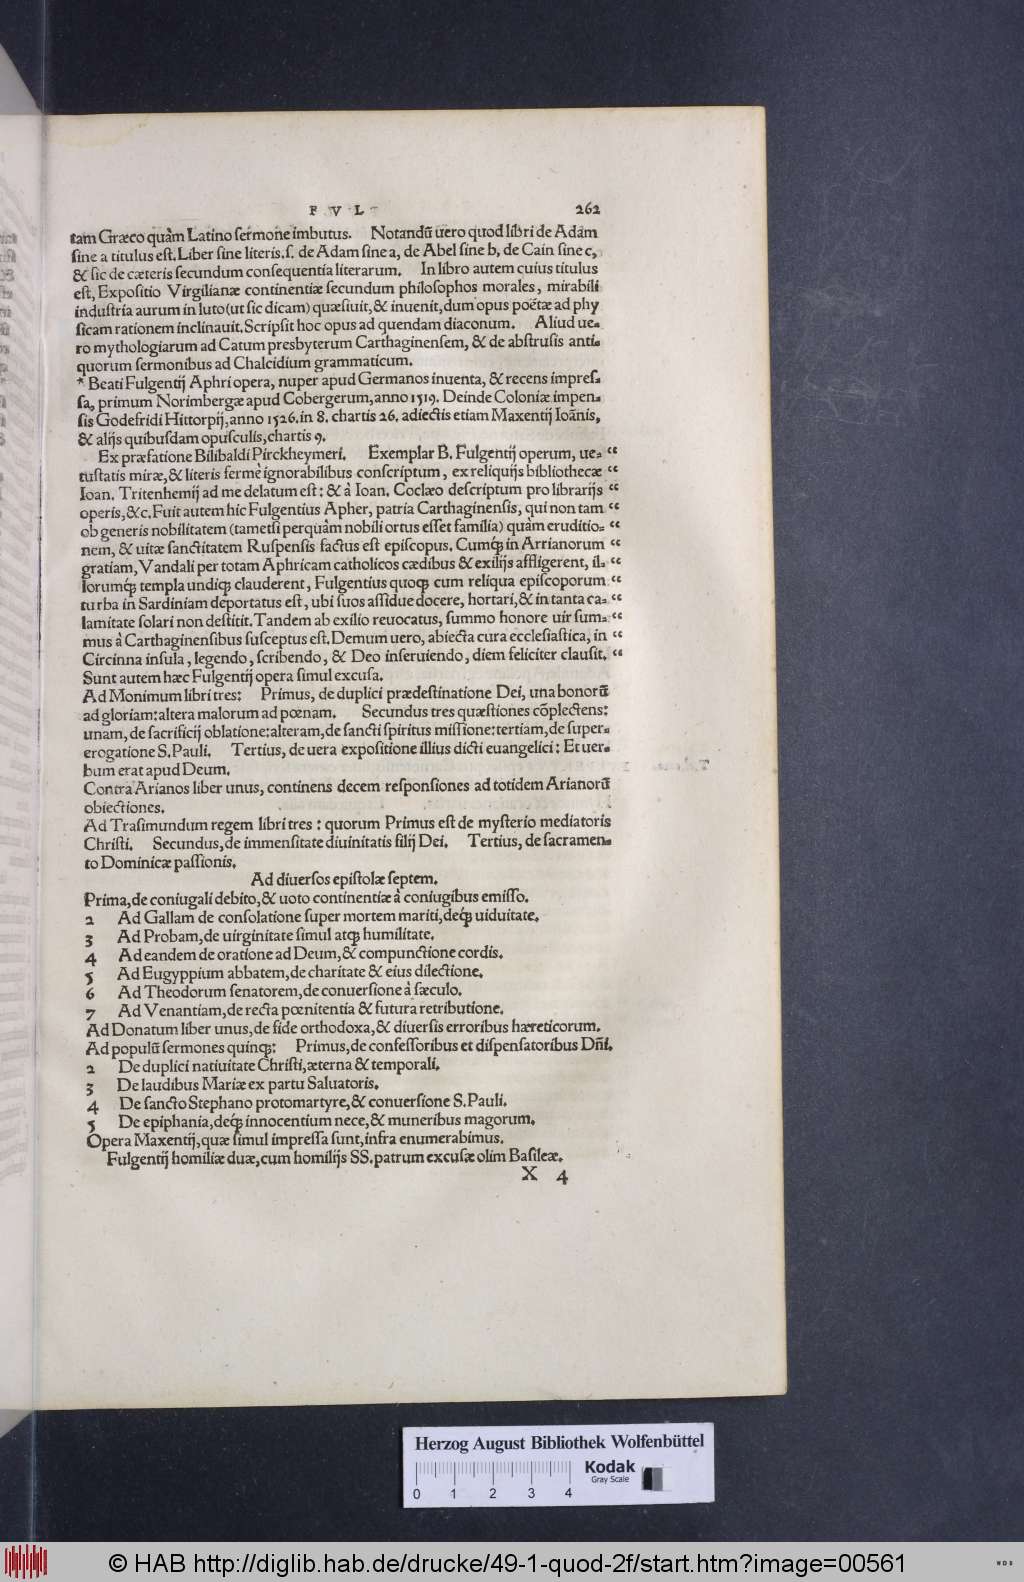 F V L 262
tam Græco quàm Latino ſermone imbutus. Notandū uero quod libri de Adam
ſine a titulus eſt. Liber ſine literis. ſ. de Adam ſine a, de Abel ſine b, de Cain ſine c,
& ſic de cæteris ſecundum conſequentia literarum. In libro autem cuius titulus
eſt, Expoſitio Virgilianæ continentiæ ſecundum philoſophos morales, mirabili
induſtria aurum in luto (ut ſic dicam) quæſiuit, & inuenit, dum opus poëtæ ad phy
ſicam rationem inclinauit. Scripſit hoc opus ad quendam diaconum. Aliud ue-
ro mythologiarum ad Catum presbyterum Carthaginenſem, & de abſtruſis anti-
quorum ſermonibus ad Chalcidium grammaticum.
* Beati Fulgentij Aphri opera, nuper apud Germanos inuenta, & recens impreſ-
ſa, primum Norimbergæ apud Cobergerum, anno 1519. Deinde Coloniæ impen-
ſis Godefridi Hittorpij, anno 1526. in 8. chartis 26. adiectis etiam Maxentij Ioānis,
& alijs quibuſdam opuſculis, chartis 9.
Ex præfatione Bilibaldi Pirckheymeri. Exemplar B. Fulgentij operum, ue- “
tuſtatis miræ, & literis fermè ignorabilibus conſcriptum, ex reliquijs bibliothecæ “
Ioan. Tritenhemij ad me delatum eſt: & à Ioan. Coclæo deſcriptum pro librarijs “
operis, &c. Fuit autem hic Fulgentius Apher, patria Carthaginenſis, qui non tam “
ob generis nobilitatem (tametſi perquàm nobili ortus eſſet familia) quàm eruditio- “
nem, & uitæ ſanctitatem Ruſpenſis factus eſt epiſcopus. Cumq́ꝫ in Arrianorum “
gratiam, Vandali per totam Aphricam catholicos cædibus & exilijs affligerent, il- “
lorumq́ꝫ templa undiqꝫ clauderent, Fulgentius quoqꝫ cum reliqua epiſcoporum “
turba in Sardiniam deportatus eſt, ubi ſuos aſſidue docere, hortari, & in tanta ca- “
lamitate ſolari non deſtitit. Tandem ab exilio reuocatus, ſummo honore uir ſum- “
mus à Carthaginenſibus ſuſceptus eſt. Demum uero, abiecta cura eccleſiaſtica, in “
Circinna inſula, legendo, ſcribendo, & Deo inſeruiendo, diem feliciter clauſit. “
Sunt autem hæc Fulgentij opera ſimul excuſa.
Ad Monimum libri tres: Primus, de duplici prædeſtinatione Dei, una bonorū
ad gloriam: altera malorum ad pœnam. Secundus tres quæſtiones cōplectens:
unam, de ſacrificij oblatione: alteram, de ſancti ſpiritus miſſione: tertiam, de ſuper-
erogatione S. Pauli. Tertius, de uera expoſitione illius dicti euangelici: Et uer-
bum erat apud Deum.
Contra Arianos liber unus, continens decem reſponſiones ad totidem Arianorū
obiectiones.
Ad Traſimundum regem libri tres: quorum Primus eſt de myſterio mediatoris
Chriſti. Secundus, de immenſitate diuinitatis filij Dei. Tertius, de ſacramen-
to Dominicæ paſſionis.
Ad diuerſos epiſtolæ ſeptem.
Prima, de coniugali debito, & uoto continentiæ à coniugibus emiſſo.
2 Ad Gallam de conſolatione ſuper mortem mariti, deq́ꝫ uiduitate.
3 Ad Probam, de uirginitate ſimul atqꝫ humilitate.
4 Ad eandem de oratione ad Deum, & compunctione cordis.
5 Ad Eugyppium abbatem, de charitate & eius dilectione.
6 Ad Theodorum ſenatorem, de conuerſione à ſæculo.
7 Ad Venantiam, de recta pœnitentia & futura retributione.
Ad Donatum liber unus, de fide orthodoxa, & diuerſis erroribus hæreticorum.
Ad populū ſermones quinqꝫ: Primus, de confeſſoribus et diſpenſatoribus Dñi.
2 De duplici natiuitate Chriſti, æterna & temporali.
3 De laudibus Mariæ ex partu Saluatoris.
4 De ſancto Stephano protomartyre, & conuerſione S. Pauli.
5 De epiphania, deq́ꝫ innocentium nece, & muneribus magorum.
Opera Maxentij, quæ ſimul impreſſa ſunt, infra enumerabimus.
Fulgentij homiliæ duæ, cum homilijs SS. patrum excuſæ olim Baſileæ.
X 4
Herzog August Bibliothek Wolfenbüttel
Kodak
Gray Scale
0 1 2 3 4
© HAB http://diglib.hab.de/drucke/49-1-quod-2f/start.htm?image=00561